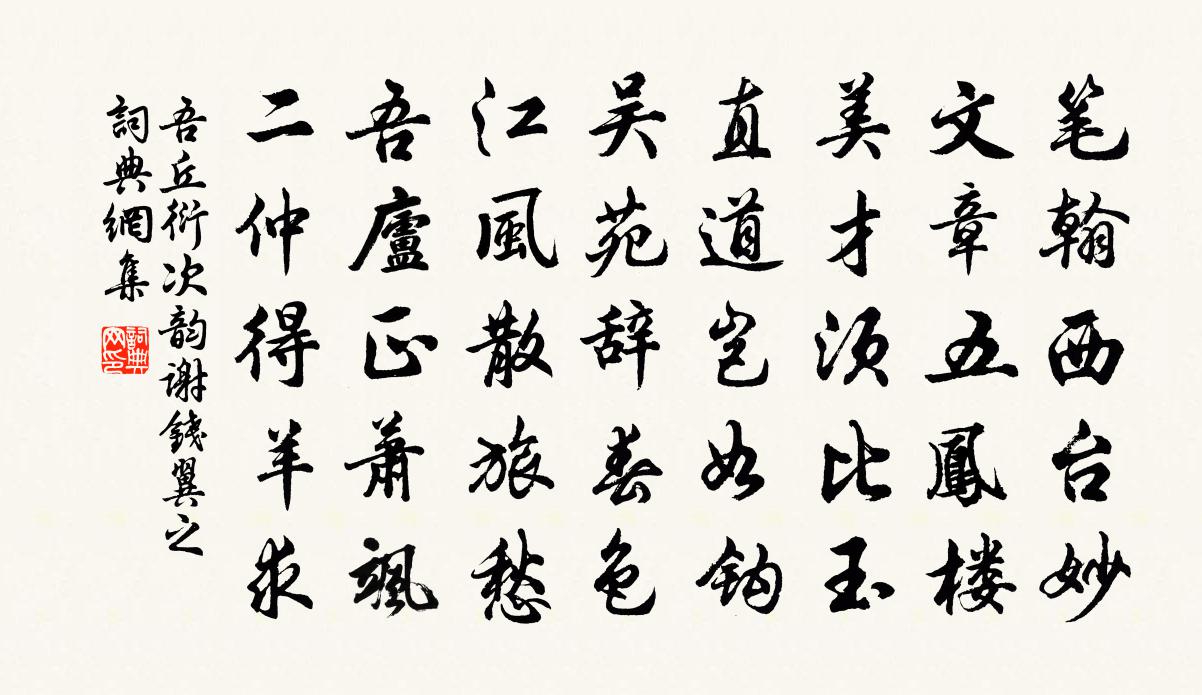 笔翰西台妙
文章五鳳楼
美才须比玉
直道岂如钩
吴苑辞春色
江風散旅愁
吾廬正萧飒
二仲得羊求
吾丘衍次韵谢錢翼之
詞典網集
詞典网印